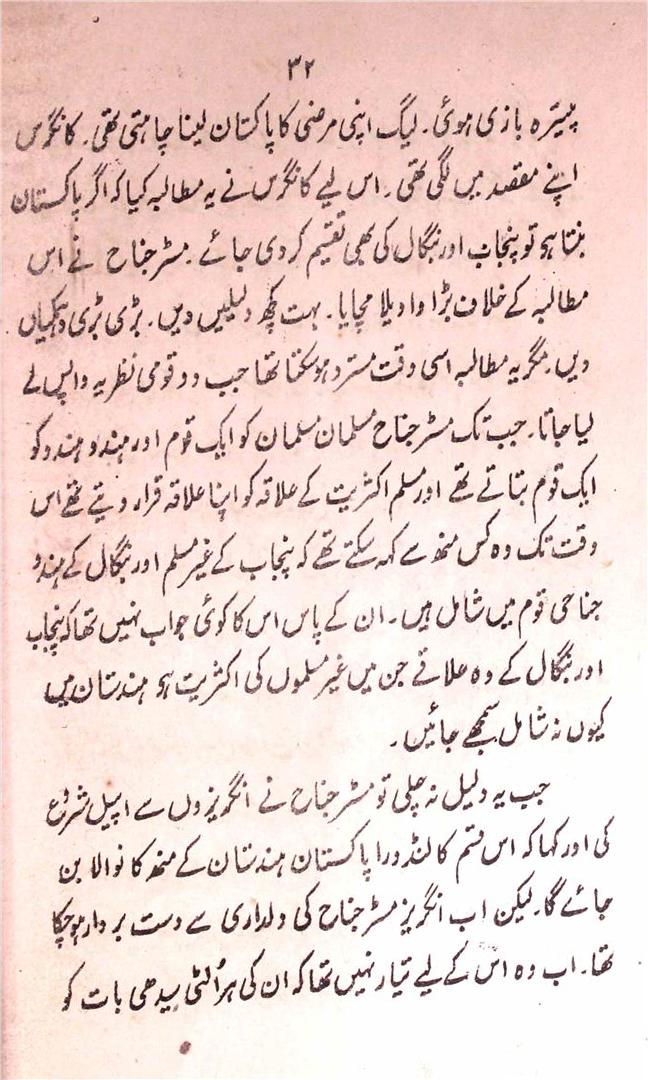 ۳۲
پیترہ بازی ہوئی۔ لیگ اپنی مرضی کا پاکستان لینا چاہتی تھی۔ کانگرس
اپنے مقصد میں لگی تھی۔ اس لیے کانگرس نے یہ مطالبہ کیا کہ اگر پاکستان
بنتا ہو تو پنجاب اور بنگال کی بھی تقسیم کر دی جائے۔ مسٹر جناح نے اس
مطالبہ کے خلاف بڑا واویلا مچایا۔ بہت کچھ دلیلیں دیں۔ بڑی بڑی دہمکیاں
دیں۔ مگر یہ مطالبہ اسی وقت مسترد ہو سکتا تھا جب دو قومی نظریہ واپس لے
لیا جاتا۔ جب تک مسٹر جناح مسلمان مسلمان کو ایک قوم اور ہندو ہندو کو
ایک قوم بتاتے تھے اور مسلم اکثریت کے علاقہ کو اپنا علاقہ قرار دیتے تھے اس
وقت تک وہ کس منھ سے کہہ سکتے تھے کہ پنجاب کے غیر مسلم اور بنگال کے ہندو
جناحی قوم میں شامل ہیں۔ ان کے پاس اس کا کوئی جواب نہیں تھا کہ پنجاب
اور بنگال کے وہ علاقے جن میں غیر مسلموں کی اکثریت ہو ہندستان میں
کیوں نہ شامل سمجھے جائیں۔
جب یہ دلیل نہ چلی تو مسٹر جناح نے انگریزوں سے اپیل شروع
کی اور کہا کہ اس قسم کا لنڈورا پاکستان ہندستان کے منھ کا نوالا بن
جائے گا۔ لیکن اب انگریز مسٹر جناح کی دلداری سے دست بردار ہو چکا
تھا۔ اب وہ اس کے لیے تیار نہیں تھا کہ ان کی ہر اُلٹی سیدھی بات کو